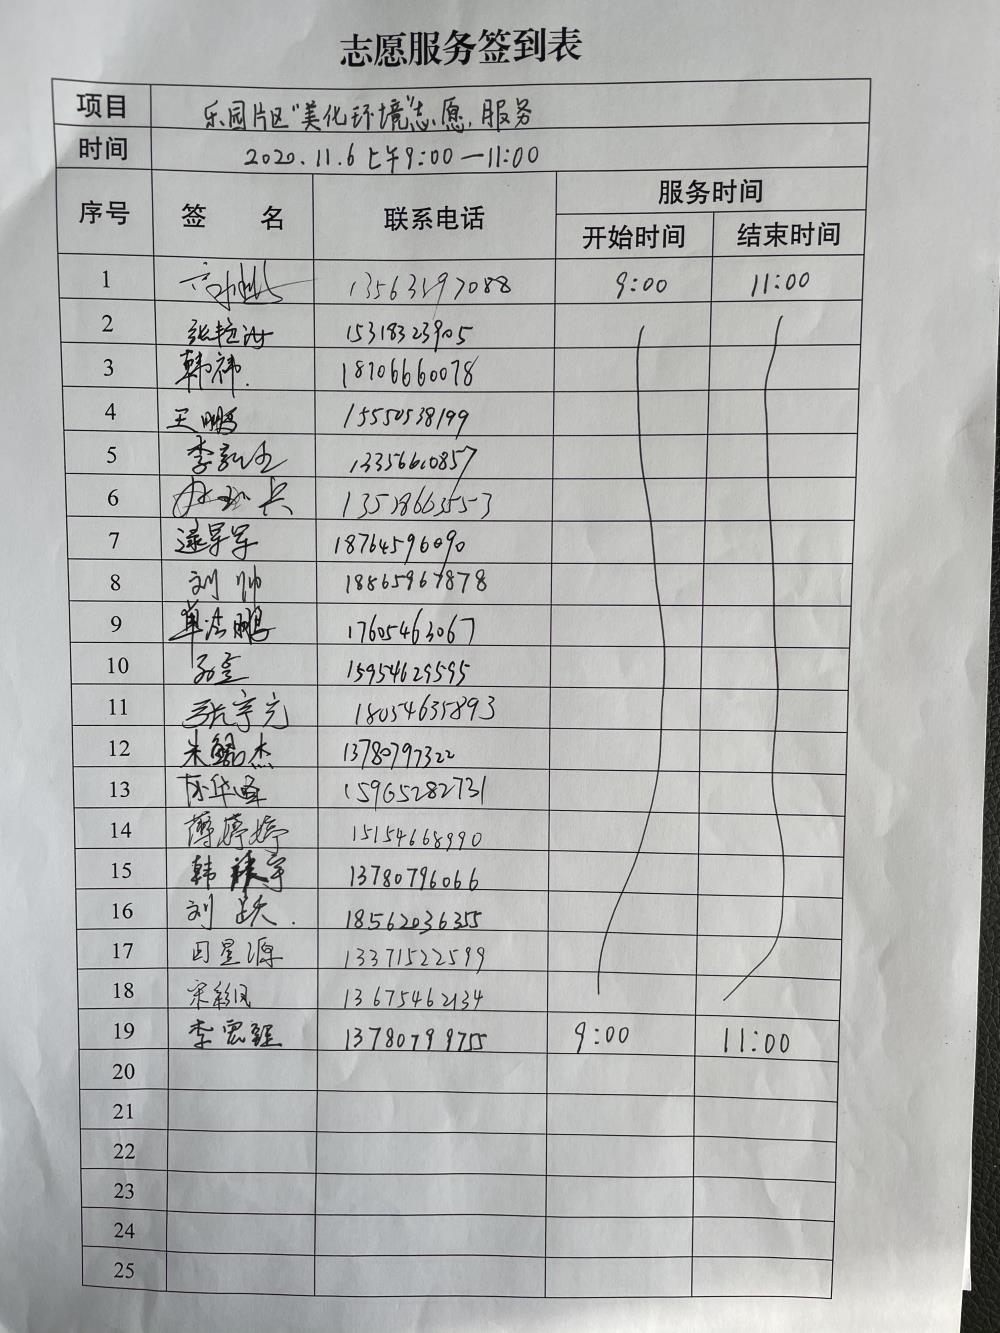 志愿服务签到表
项目 乐园片区"美化环境"志愿服务
时间 2020.11.6 上午9:00—11:00
序号 签 名 联系电话 服务时间
开始时间 结束时间
1 13563297088 9:00 11:00
2 15318323905
3 韩祎. 18706660078
4 王鹏 15550538199
5 13356610857
6 13518663553
7 逯军军 18764596090
8 刘帅 18865967878
9 单洪鹏 17605463067
10 15954629595
11 18054635893
12 杰 13780797322
13 华峰 15965282731
14 薄婷婷 15154668990
15 韩 宇 13780796066
16 刘跃. 18562036355
17 星源 13371522599
18 宋彩凤 13675462134
19 李 13780799755 9:00 11:00
20
21
22
23
24
25